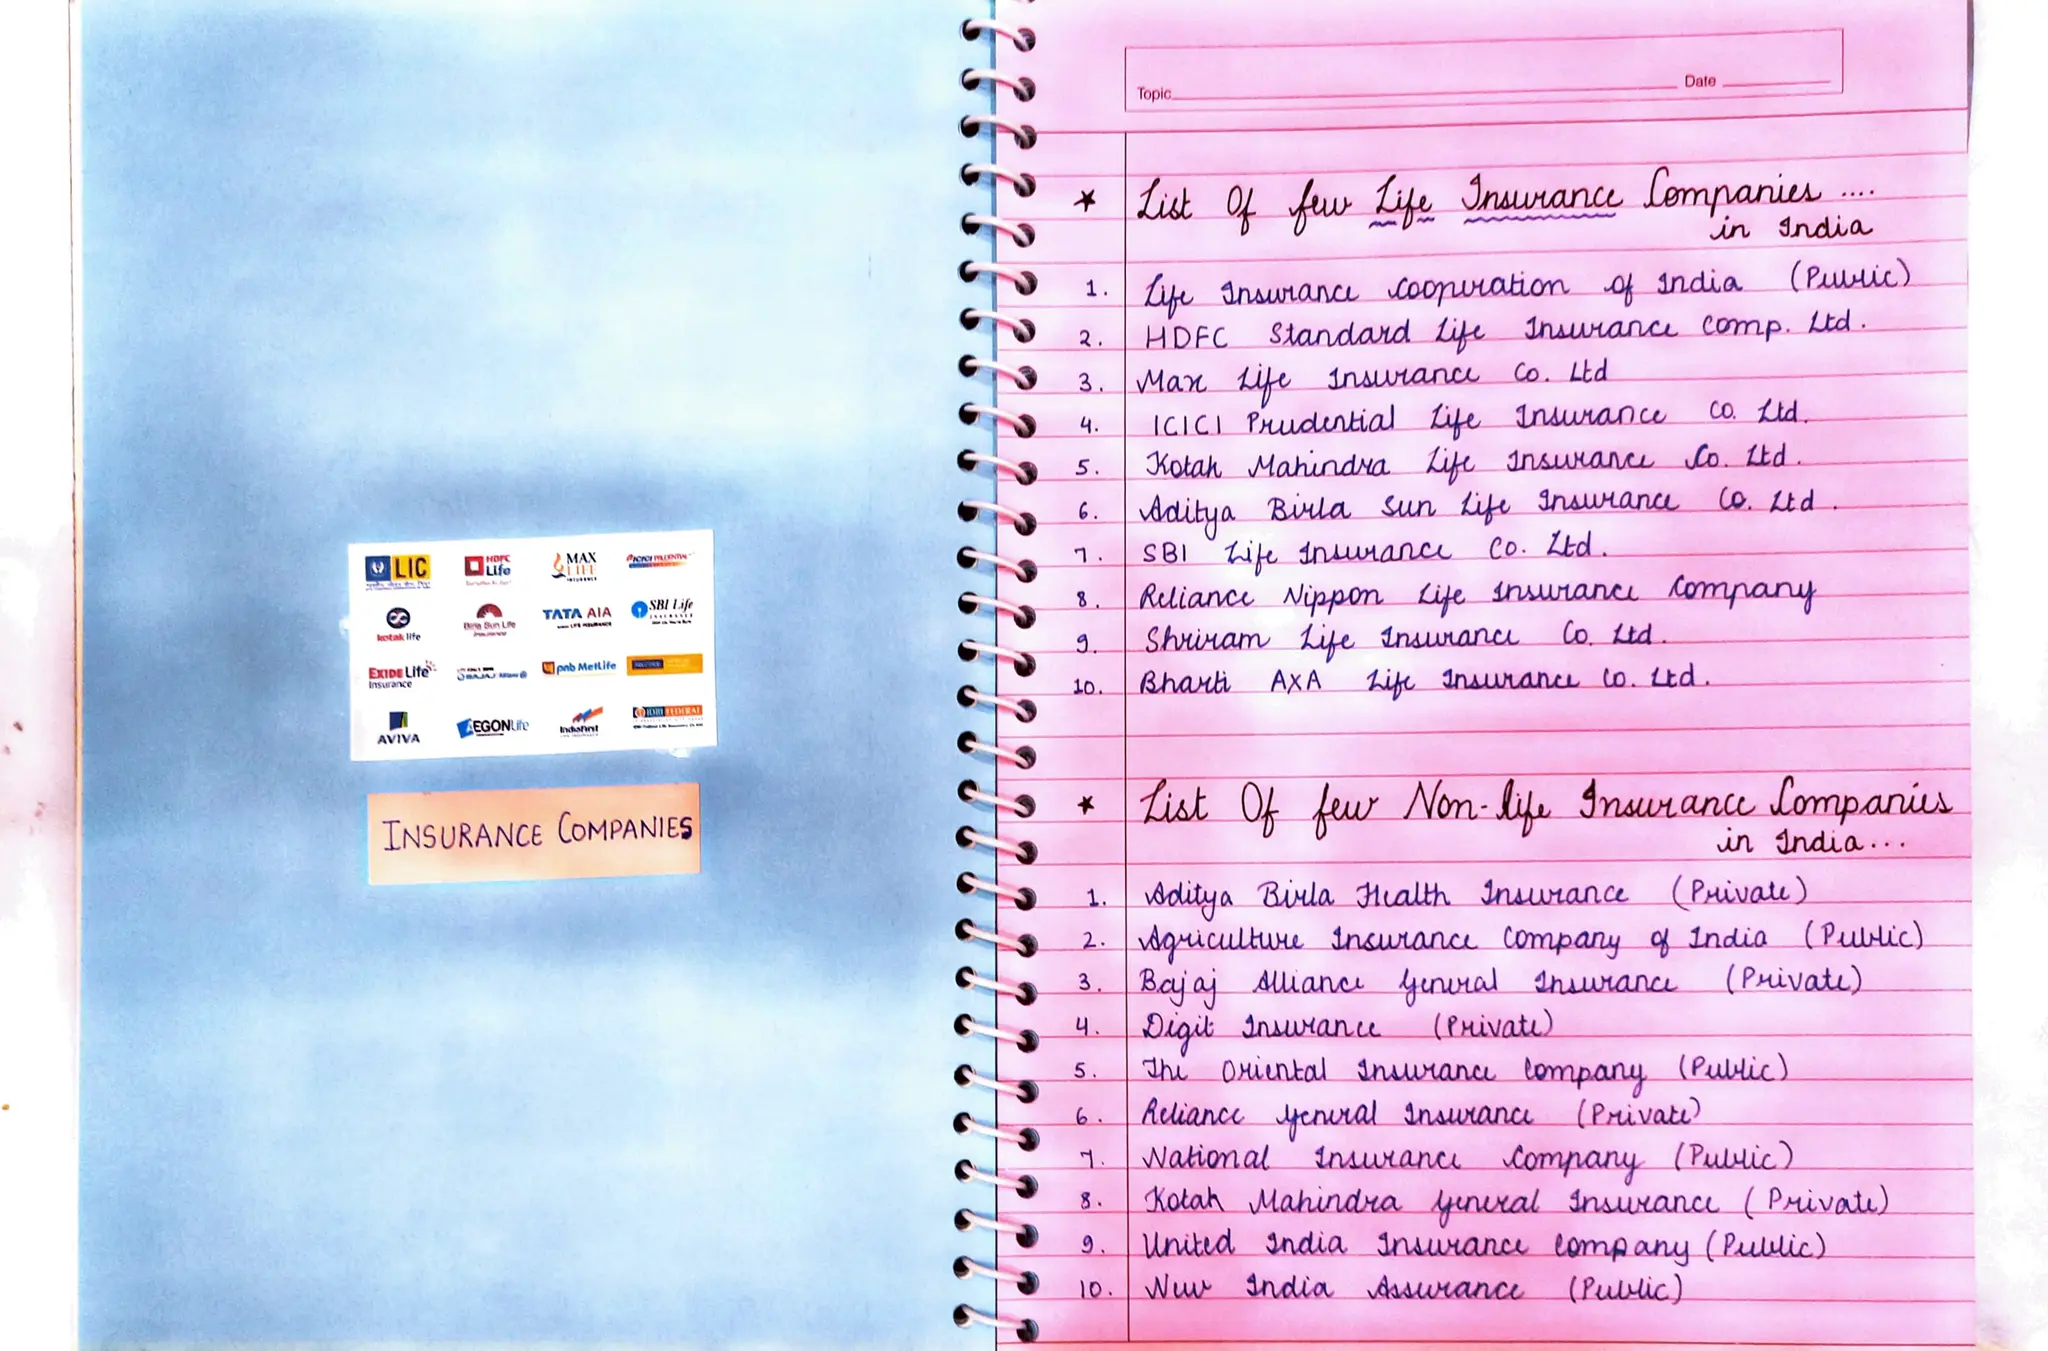 LIC
HDFC Life
MAX LIFE INSURANCE
ICICI PRUDENTIAL
kotak life
Birla Sun Life Insurance
TATA AIA LIFE INSURANCE
SBI Life INSURANCE
EXIDE Life Insurance
BAJAJ Allianz
pnb MetLife
AVIVA
AEGON Life
IndiaFirst
IDBI FEDERAL
INSURANCE COMPANIES
Topic Date
★ List Of few Life Insurance Companies ....
in India
1. Life Insurance Cooperation of India (Public)
2. HDFC Standard Life Insurance Comp. Ltd.
3. Max Life Insurance Co. Ltd
4. ICICI Prudential Life Insurance Co. Ltd.
5. Kotak Mahindra Life Insurance Co. Ltd.
6. Aditya Birla Sun Life Insurance Co. Ltd.
7. SBI Life Insurance Co. Ltd.
8. Reliance Nippon Life Insurance Company
9. Shriram Life Insurance Co. Ltd.
10. Bharti AXA Life Insurance Co. Ltd.
★ List Of few Non-life Insurance Companies
in India...
1. Aditya Birla Health Insurance (Private)
2. Agriculture Insurance Company of India (Public)
3. Bajaj Alliance General Insurance (Private)
4. Digit Insurance (Private)
5. The Oriental Insurance Company (Public)
6. Reliance General Insurance (Private)
7. National Insurance Company (Public)
8. Kotak Mahindra General Insurance (Private)
9. United India Insurance Company (Public)
10. New India Assurance (Public)